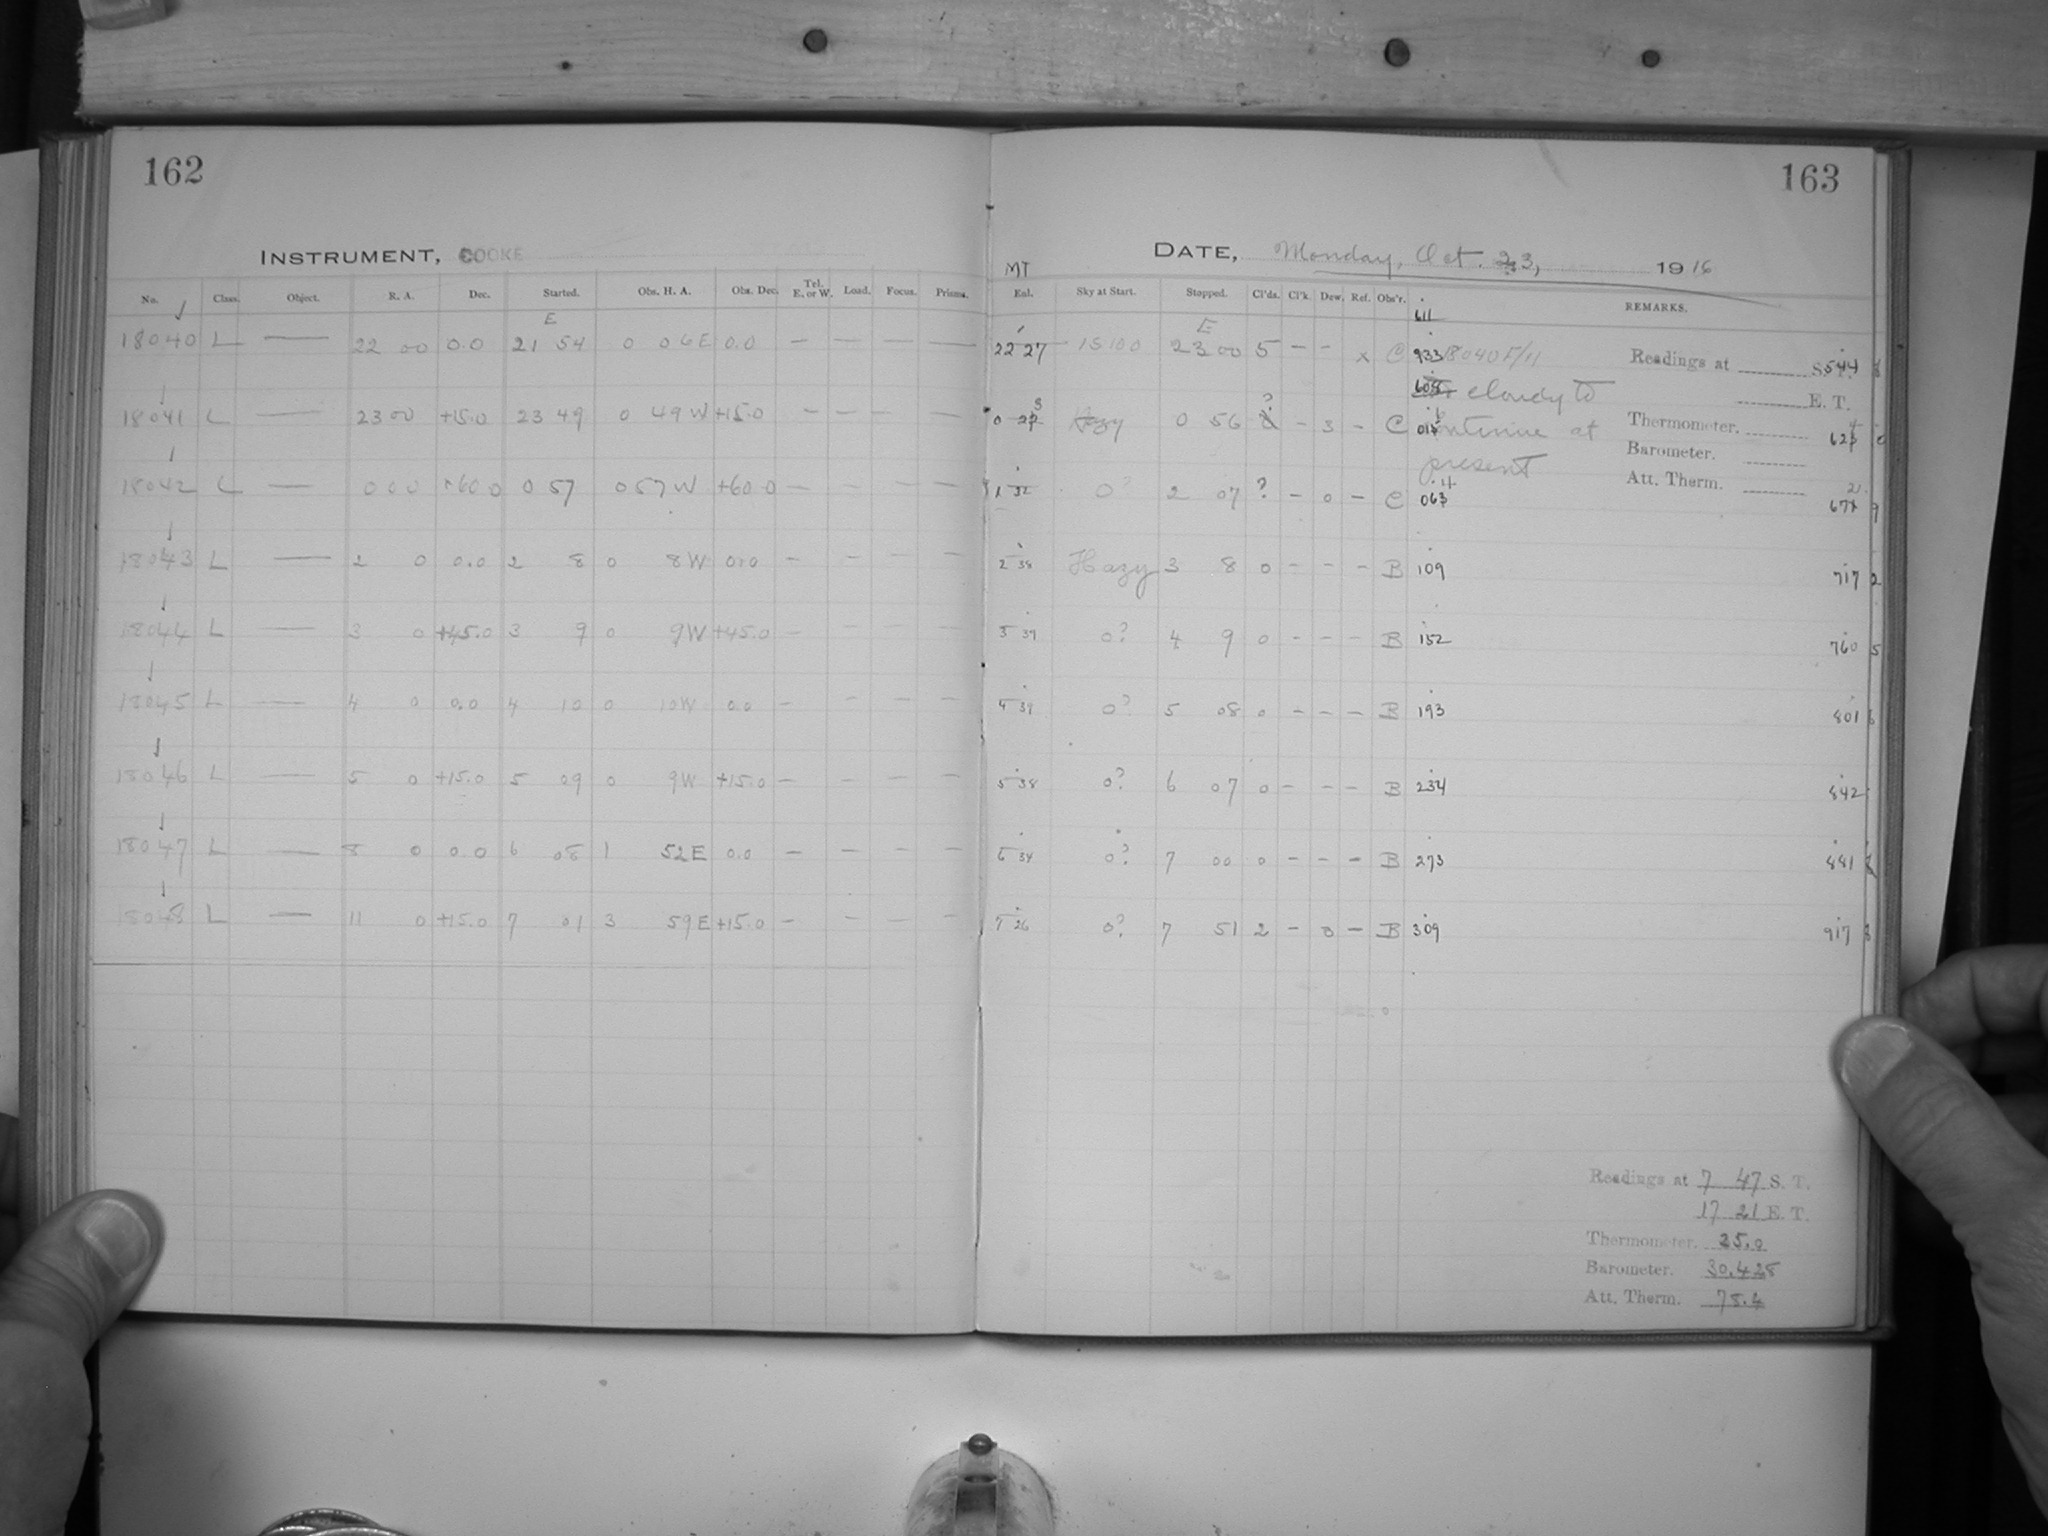 162
163
INSTRUMENT, COOKE
DATE, Monday, Oct. 23, 1916
MT
No. Class. Object. R. A. Dec. Started. Obs. H. A. Obs. Dec. Tel. E. or W. Load. Focus. Prisms. Eul. Sky at Start. Stopped. Cl'ds. Cl'k. Dew. Ref. Obs'r. REMARKS.
E E 611
18040 L — 22 00 0.0 21 54 0 06E 0.0 — — — — 22 27 15100 23 00 5 – – x C 933 18040 F/11
Readings at S. T. 544
cloudy to
E. T.
18041 L — 23 00 +15.0 23 49 0 49W +15.0 — — — — 0 Hazy 0 56 ? – 3 – C continue at
Thermometer.
Barometer.
present
Att. Therm.
18042 L — 0 00 +60.0 0 57 0 57W +60.0 — — — — 1 32 0? 2 07 ? – 0 – C
18043 L — 2 0 0.0 2 8 0 8W 0.0 — — — — 2 38 Hazy 3 8 0 – – – B 109 717 2
18044 L — 3 0 +45.0 3 9 0 9W +45.0 — — — — 3 39 0? 4 9 0 – – – B 152 760 5
18045 L — 4 0 0.0 4 10 0 10W 0.0 — — — — 4 39 0? 5 08 0 – – – B 193 801
18046 L — 5 0 +15.0 5 09 0 9W +15.0 — — — — 5 38 0? 6 07 0 – – – B 234 842
18047 L — 8 0 0.0 6 08 1 52E 0.0 — — — — 6 34 0? 7 00 0 – – – B 273 881
18048 L — 11 0 +15.0 7 01 3 59E +15.0 — — — — 7 26 0? 7 51 2 – 0 – B 309 917
Readings at 7 47 S. T.
17 21 E. T.
Thermometer. 25.0
Barometer. 30.428
Att. Therm. 75.4